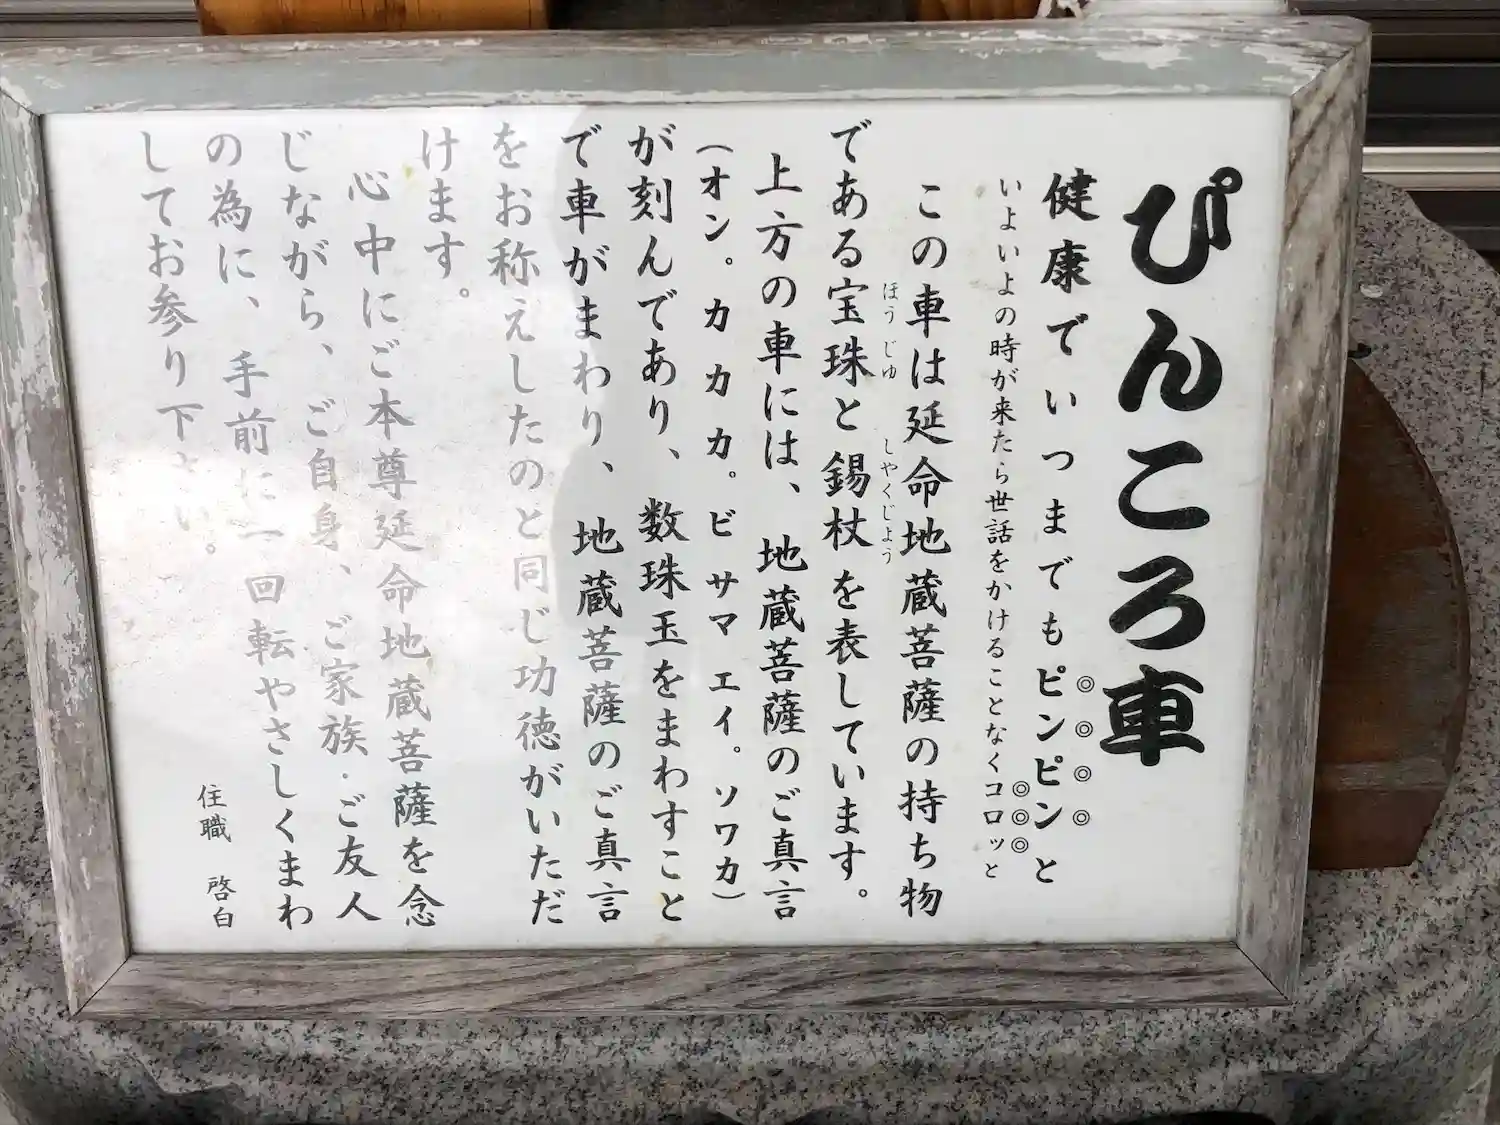 ぴんころ車
健康でいつまでもピンピンと
いよいよの時が来たら世話をかけることなくコロッと
この車は延命地蔵菩薩の持ち物
である宝珠と錫杖を表しています。
上方の車には、地蔵菩薩のご真言
（オン。カカカ。ビサマエイ。ソワカ）
が刻んであり、数珠玉をまわすこと
で車がまわり、地蔵菩薩のご真言
をお称えしたのと同じ功徳がいただ
けます。
心中にご本尊延命地蔵菩薩を念
じながら、ご自身、ご家族・ご友人
の為に、手前に一回転やさしくまわ
してお参り下さい。
住職 啓白